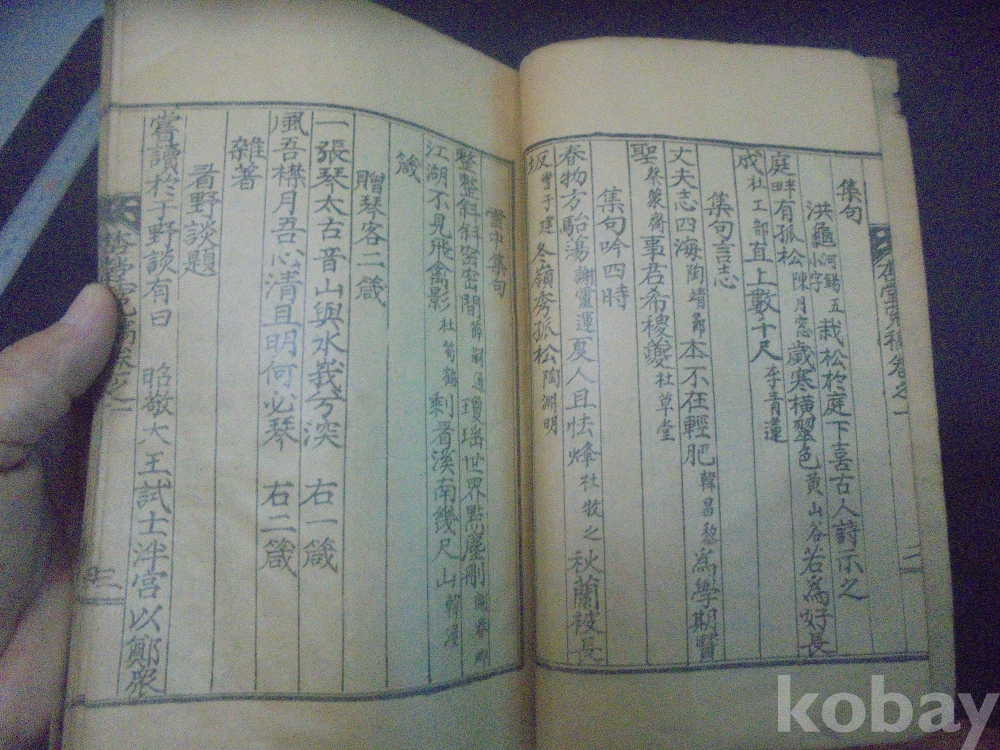 集句
洪龜 河錫五小字 栽松於庭下喜古人詩示之
庭畔有孤松 陳月窓 歲寒橫翠色 黃山谷 若爲好長
成 杜工部 直上數千尺 李青蓮
集句言志
丈夫志四海 陶靖節 本不在輕肥 韓昌黎 爲學期賢
聖 蔡裳齋 事君希稷夔 杜草堂
集句吟四時
春物方駘蕩 謝靈運 夏人且怯烽 杜牧之 秋蘭被長
坂 曹子建 冬嶺秀孤松 陶淵明
雪中集句
整整斜斜密密間 薛 瓊瑤世界點塵刪
江湖不見飛禽影 杜荀鶴 剩看溪南幾尺山 韓
箴
贈琴客二箴
一張琴太古音山與水義兮深 右一箴
風吾襟月吾心清且明何必琴 右二箴
雜著
看野談題
嘗讀於于野談有曰 昭敬大王試士泮宮以鄭眾
卷之一
二
三
kobay